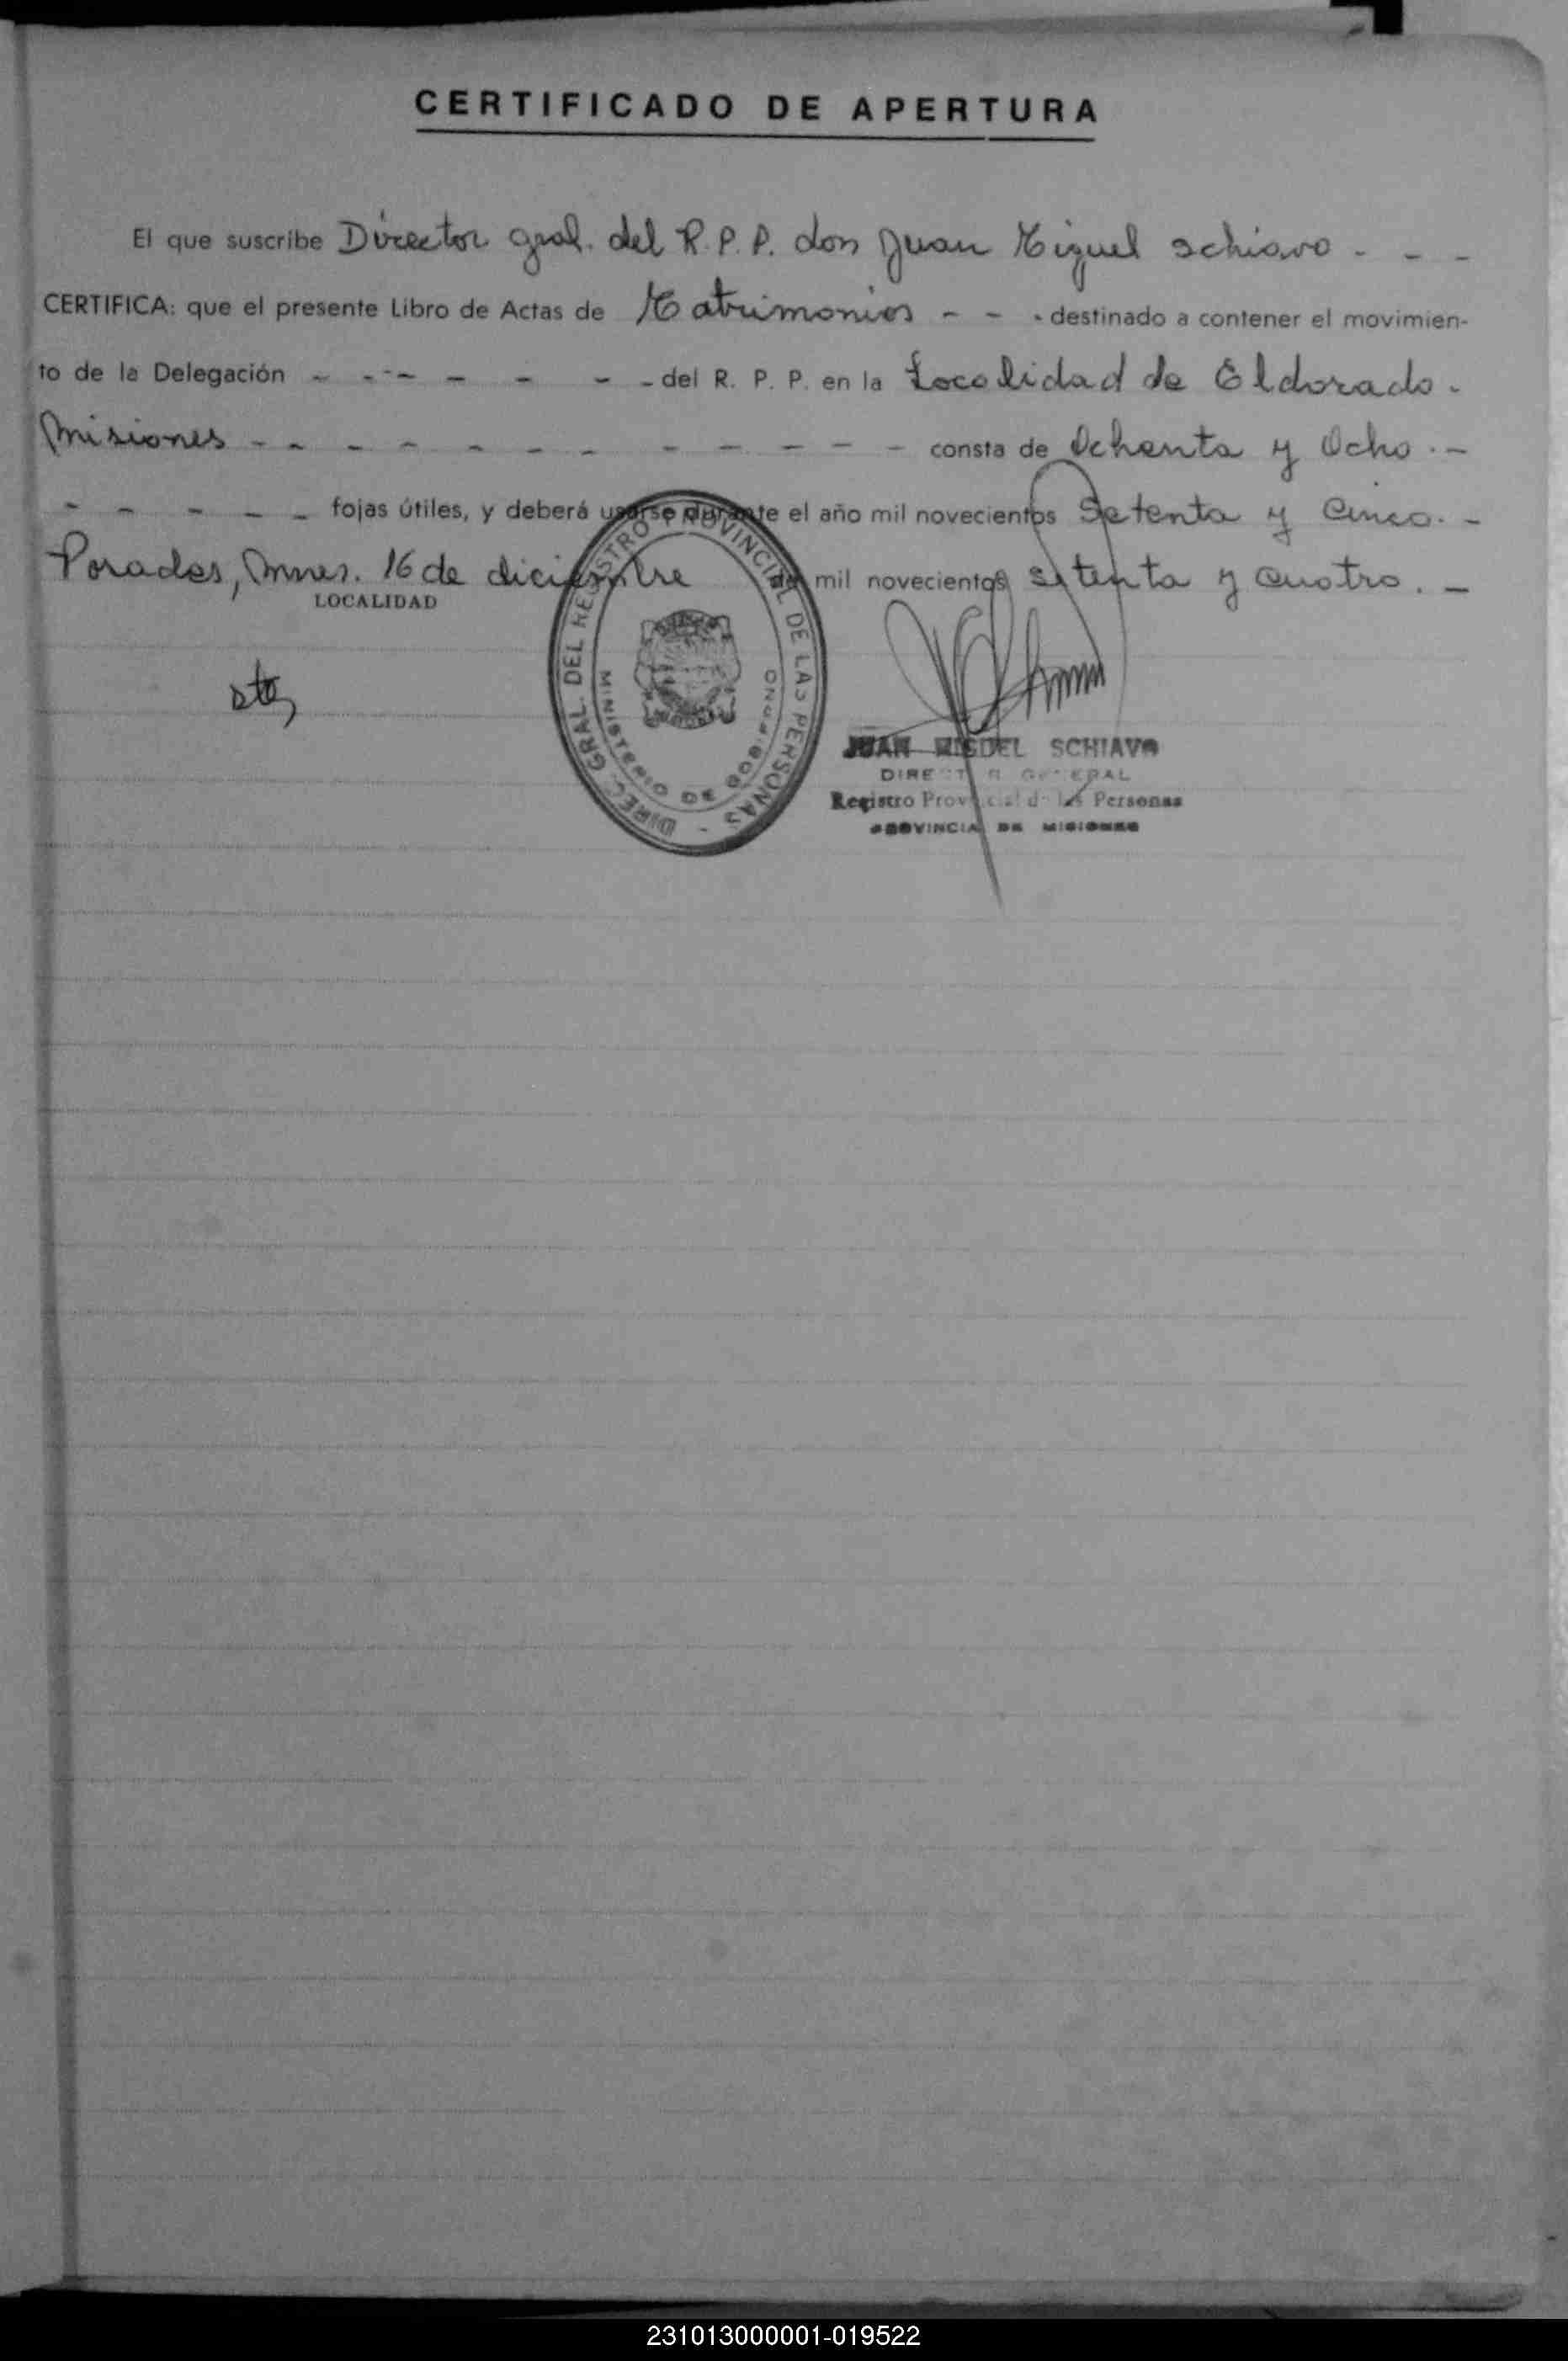 CERTIFICADO DE APERTURA
El que suscribe Director gral. del R.P.P. don Juan Miguel Schiavo - - -
CERTIFICA: que el presente Libro de Actas de Matrimonios - - - destinado a contener el movimien-
to de la Delegación - - - - - - - del R. P. P. en la Localidad de Eldorado -
Misiones - - - - - - - - - - - - consta de Ochenta y Ocho. -
- - - - - fojas útiles, y deberá usarse durante el año mil novecientos Setenta y Cinco. -
Posadas, Mnes. 16 de diciembre de mil novecientos setenta y cuatro. -
LOCALIDAD
DIREC. GRAL. DEL REGISTRO PROVINCIAL DE LAS PERSONAS -
MINISTERIO DE GOBIERNO
JUAN MIGUEL SCHIAVO
DIRECTOR GENERAL
Registro Provincial de las Personas
PROVINCIA DE MISIONES
231013000001-019522